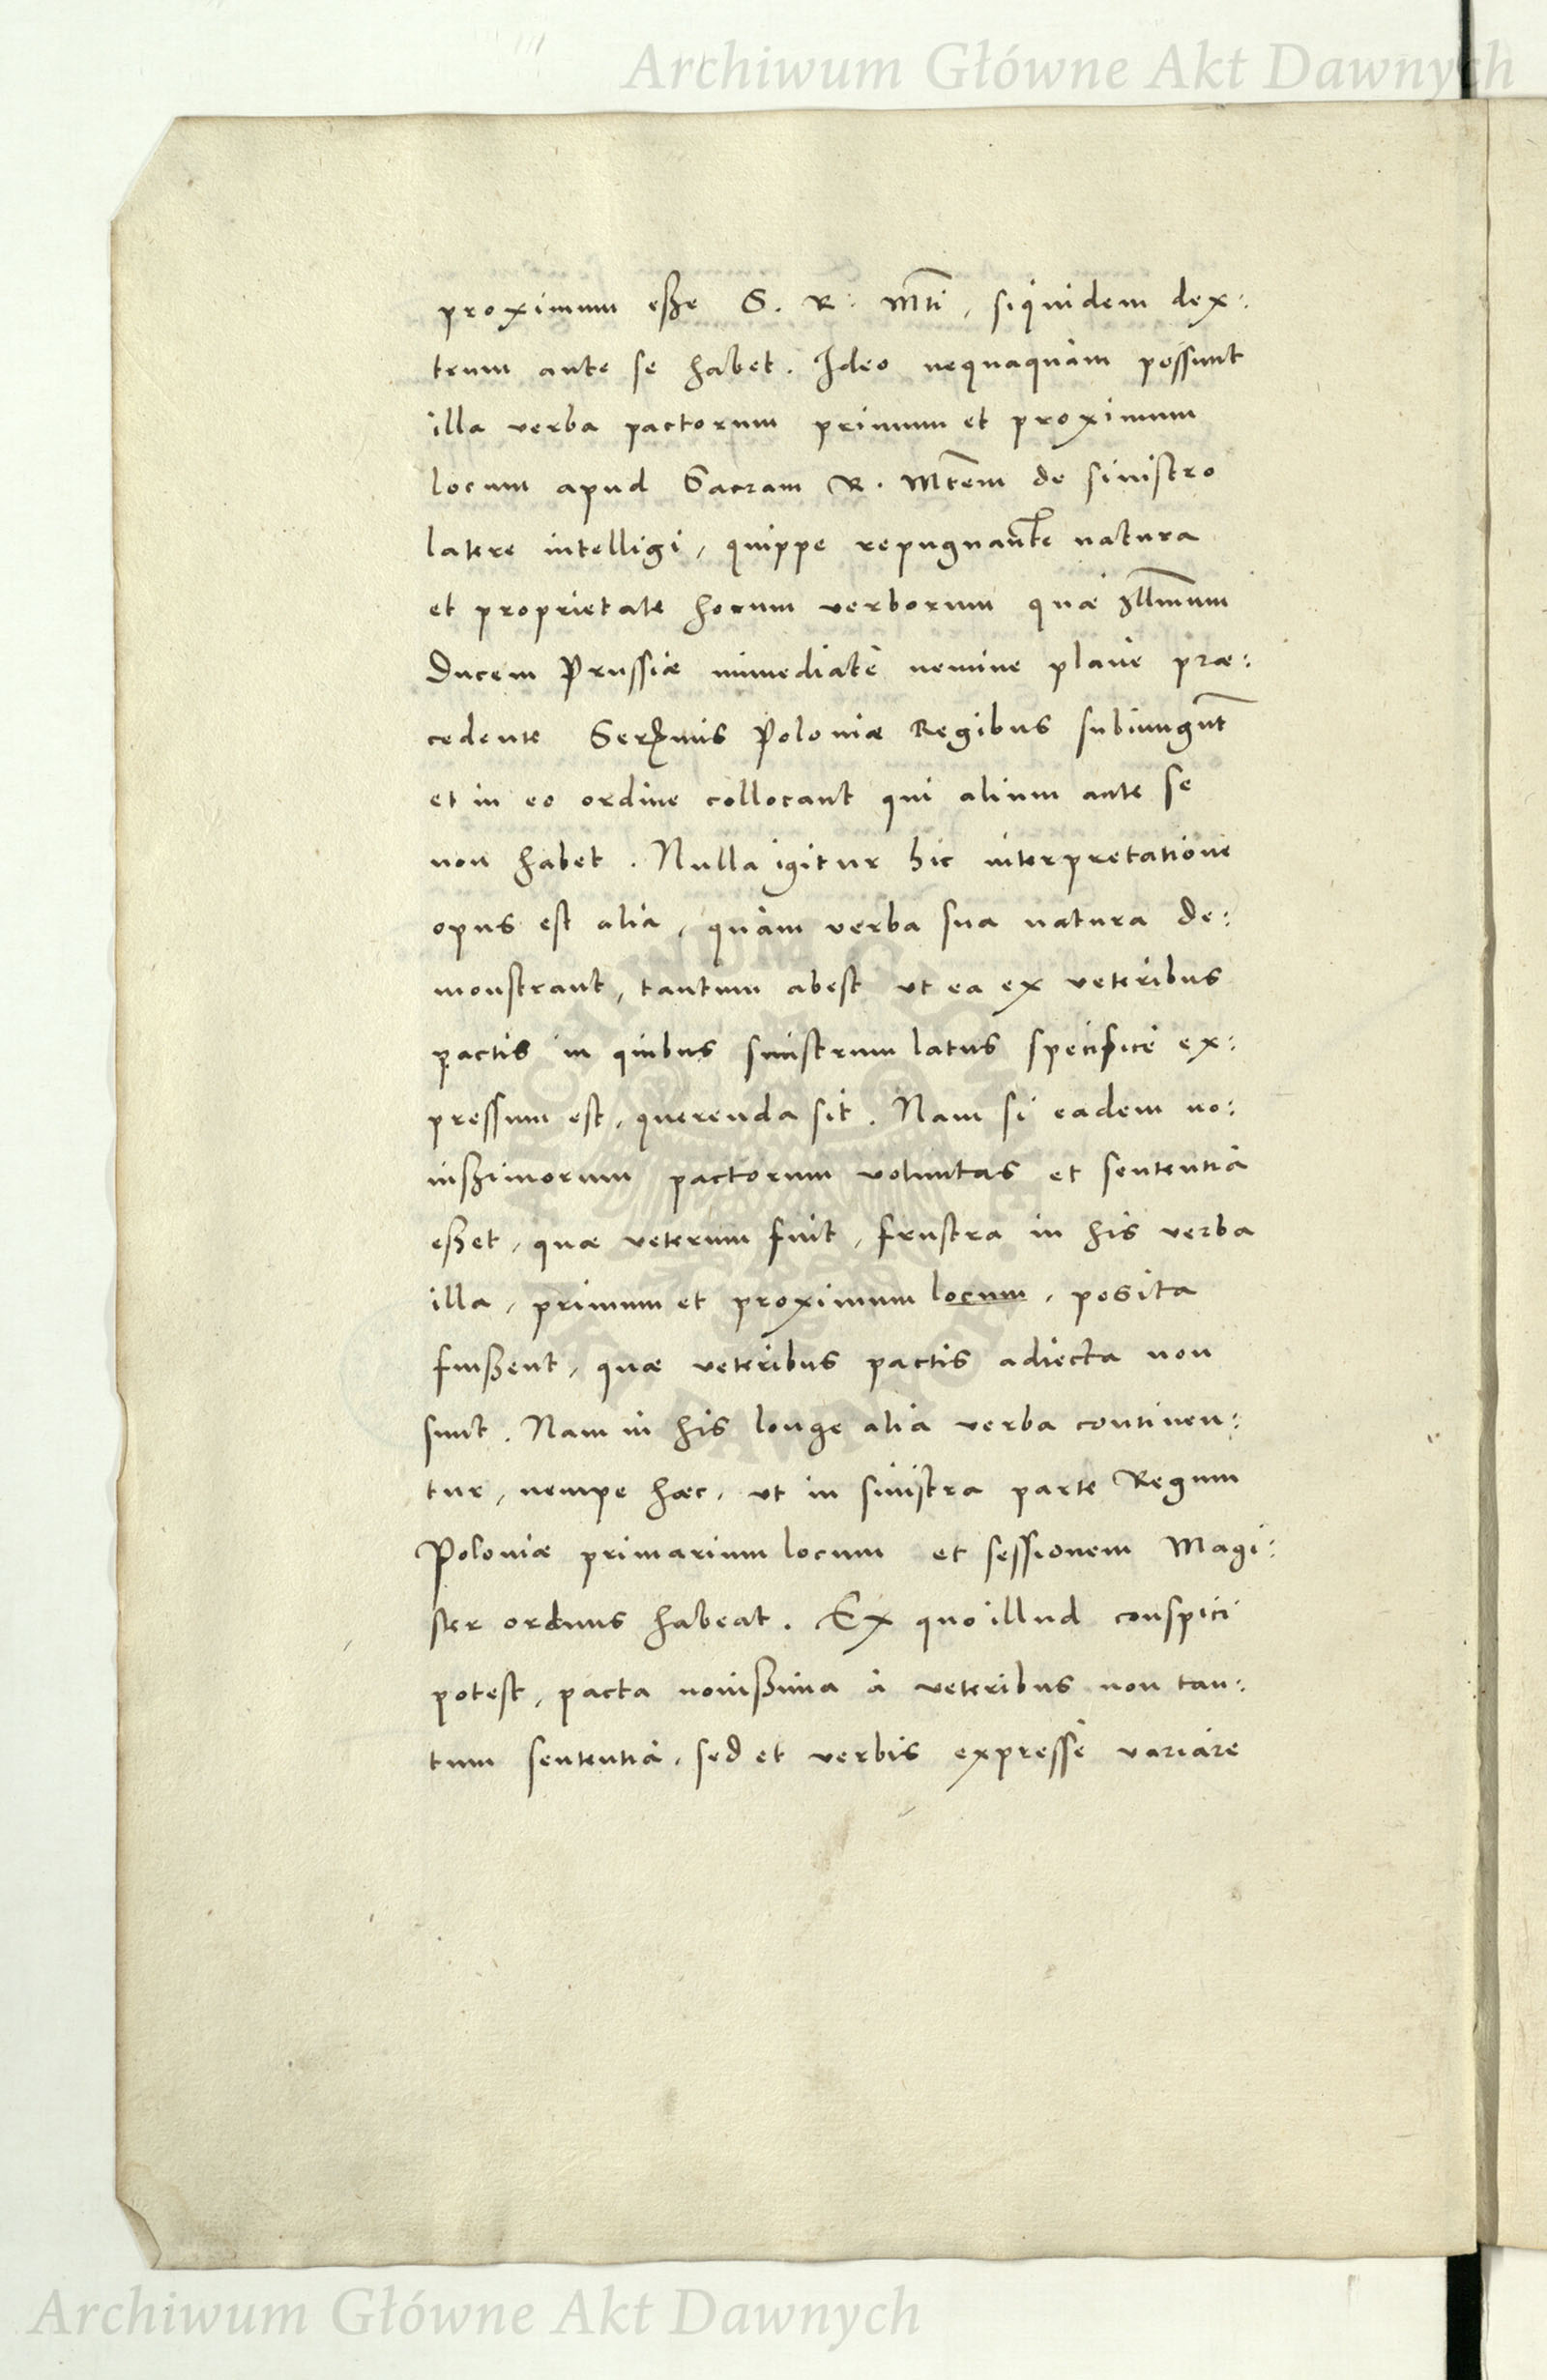 Archiwum Główne Akt Dawnych
proximum eße S. R. Mti, siquidem dex:
trum ante se habet. Ideo nequaquàm possunt
illa verba pactorum primum et proximum
locum apud Sacram R. Mtem de sinistro
latere intelligi, quippe repugnante natura
et proprietate horum verborum quæ Illmum
Ducem Prussiæ immediatè nemine planè præ:
cedente Sermis Poloniæ Regibus subiungut
et in eo ordine collocant qui alium ante se
non habet. Nulla igitur hic interpretatione
opus est alia, quàm verba sua natura de:
monstrant, tantum abest ut ea ex veteribus
pactis in quibus sinistrum latus specificè ex:
pressum est, querenda sit. Nam si eadem no:
uißimorum pactorum voluntas et sententia
eßet, quæ veterum fuit, frustra in his verba
illa, primum et proximum locum, posita
fuißent, quæ veteribus pactis adiecta non
sunt. Nam in his longe alia verba continen:
tur, nempe hæc, ut in sinistra parte Regum
Poloniæ primarium locum et sessionem Magi:
ster ordinis habeat. Ex quo illud conspici
potest, pacta nouißima à veteribus non tan:
tum sententia, sed et verbis expressè variare
Archiwum Główne Akt Dawnych